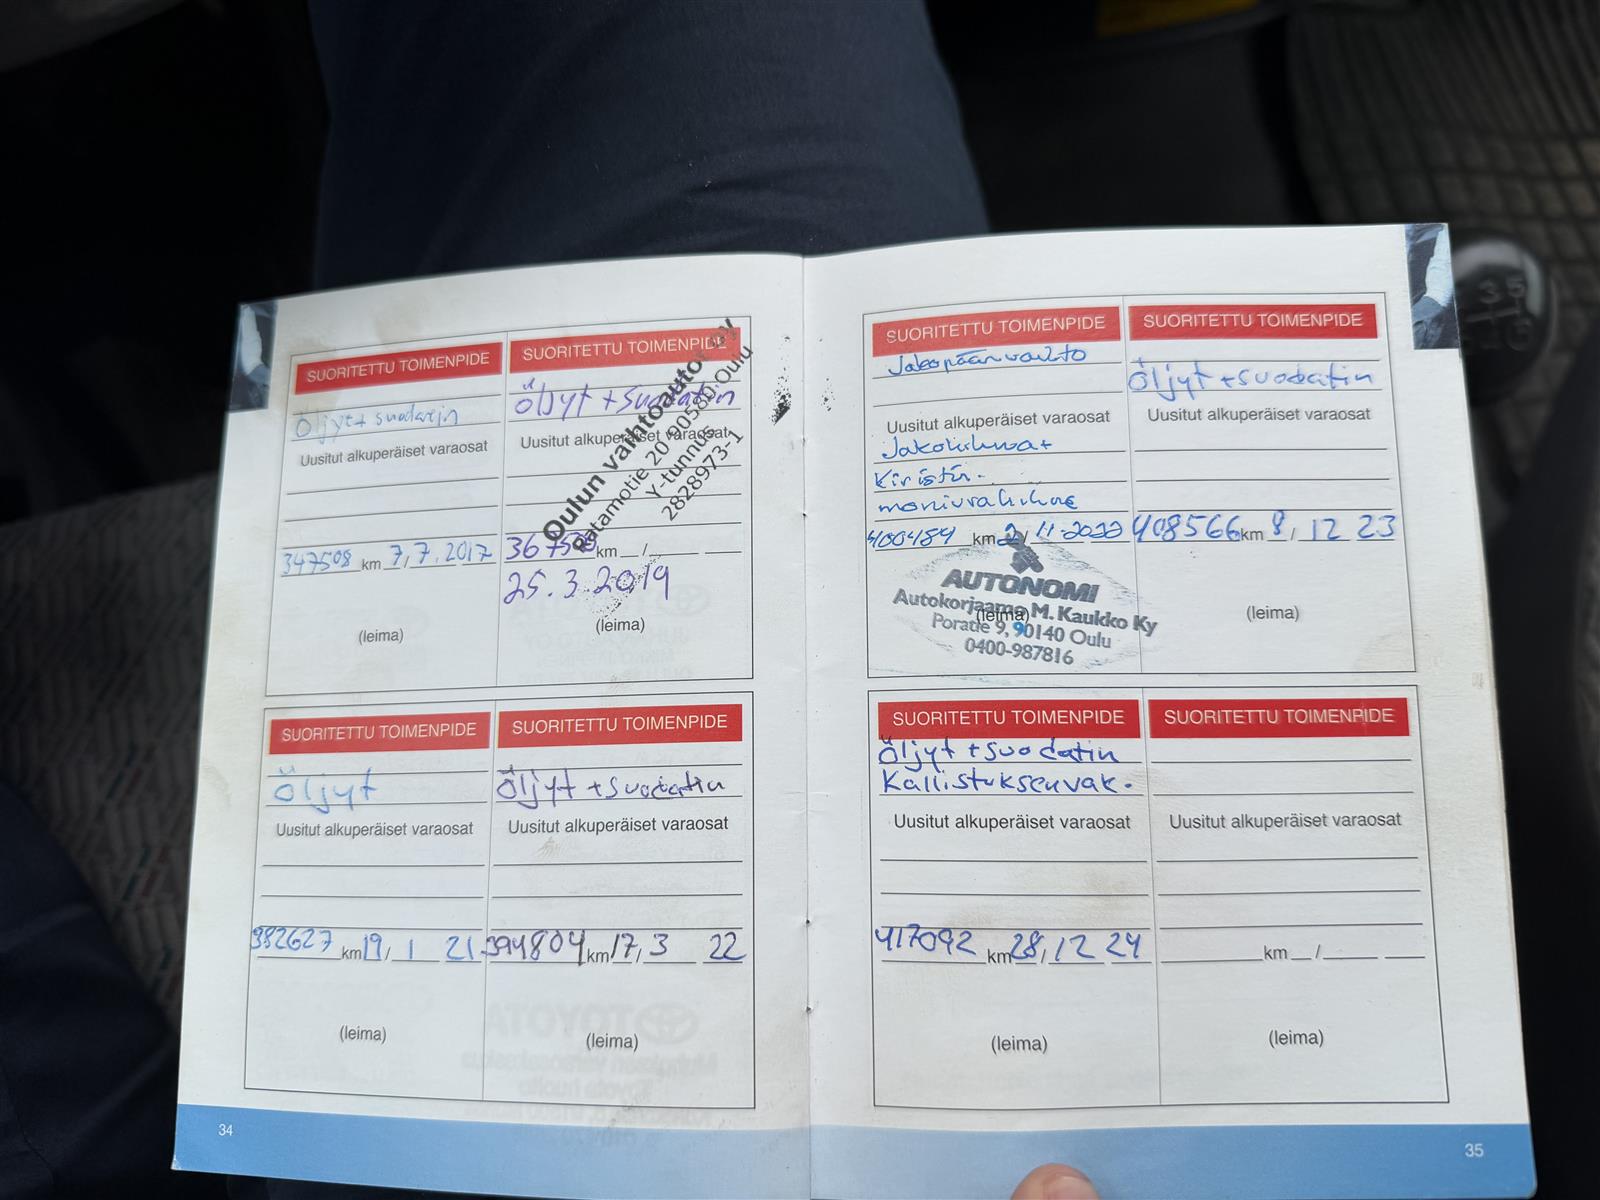 SUORITETTU TOIMENPIDE
Öljyt + suodatin
Uusitut alkuperäiset varaosat
347508 km 7,7.2017
(leima)
SUORITETTU TOIMENPIDE
Öljyt + suodatin
Uusitut alkuperäiset varaosat
km /
25.3.2019
(leima)
Oulun vaihtoautot Oy
Ratamotie 20 90580 Oulu
Y-tunnus
2828973-1
SUORITETTU TOIMENPIDE
Öljyt
Uusitut alkuperäiset varaosat
382627 km 19/1 21
(leima)
SUORITETTU TOIMENPIDE
Öljyt + suodatin
Uusitut alkuperäiset varaosat
394804 km 17/3 22
(leima)
34
SUORITETTU TOIMENPIDE
Jakopään vaihto
Uusitut alkuperäiset varaosat
Jakohihnat
Kiristin.
moniurahihna
400484 km 2/11-2022
(leima)
AUTONOMI
Autokorjaamo M. Kaukko Ky
Poratie 9, 90140 Oulu
0400-987816
SUORITETTU TOIMENPIDE
Öljyt + suodatin
Uusitut alkuperäiset varaosat
408566 km 8/12 23
(leima)
SUORITETTU TOIMENPIDE
Öljyt + suodatin
Kallistuksenvak.
Uusitut alkuperäiset varaosat
417092 km 28/12 24
(leima)
SUORITETTU TOIMENPIDE
Uusitut alkuperäiset varaosat
km /
(leima)
35